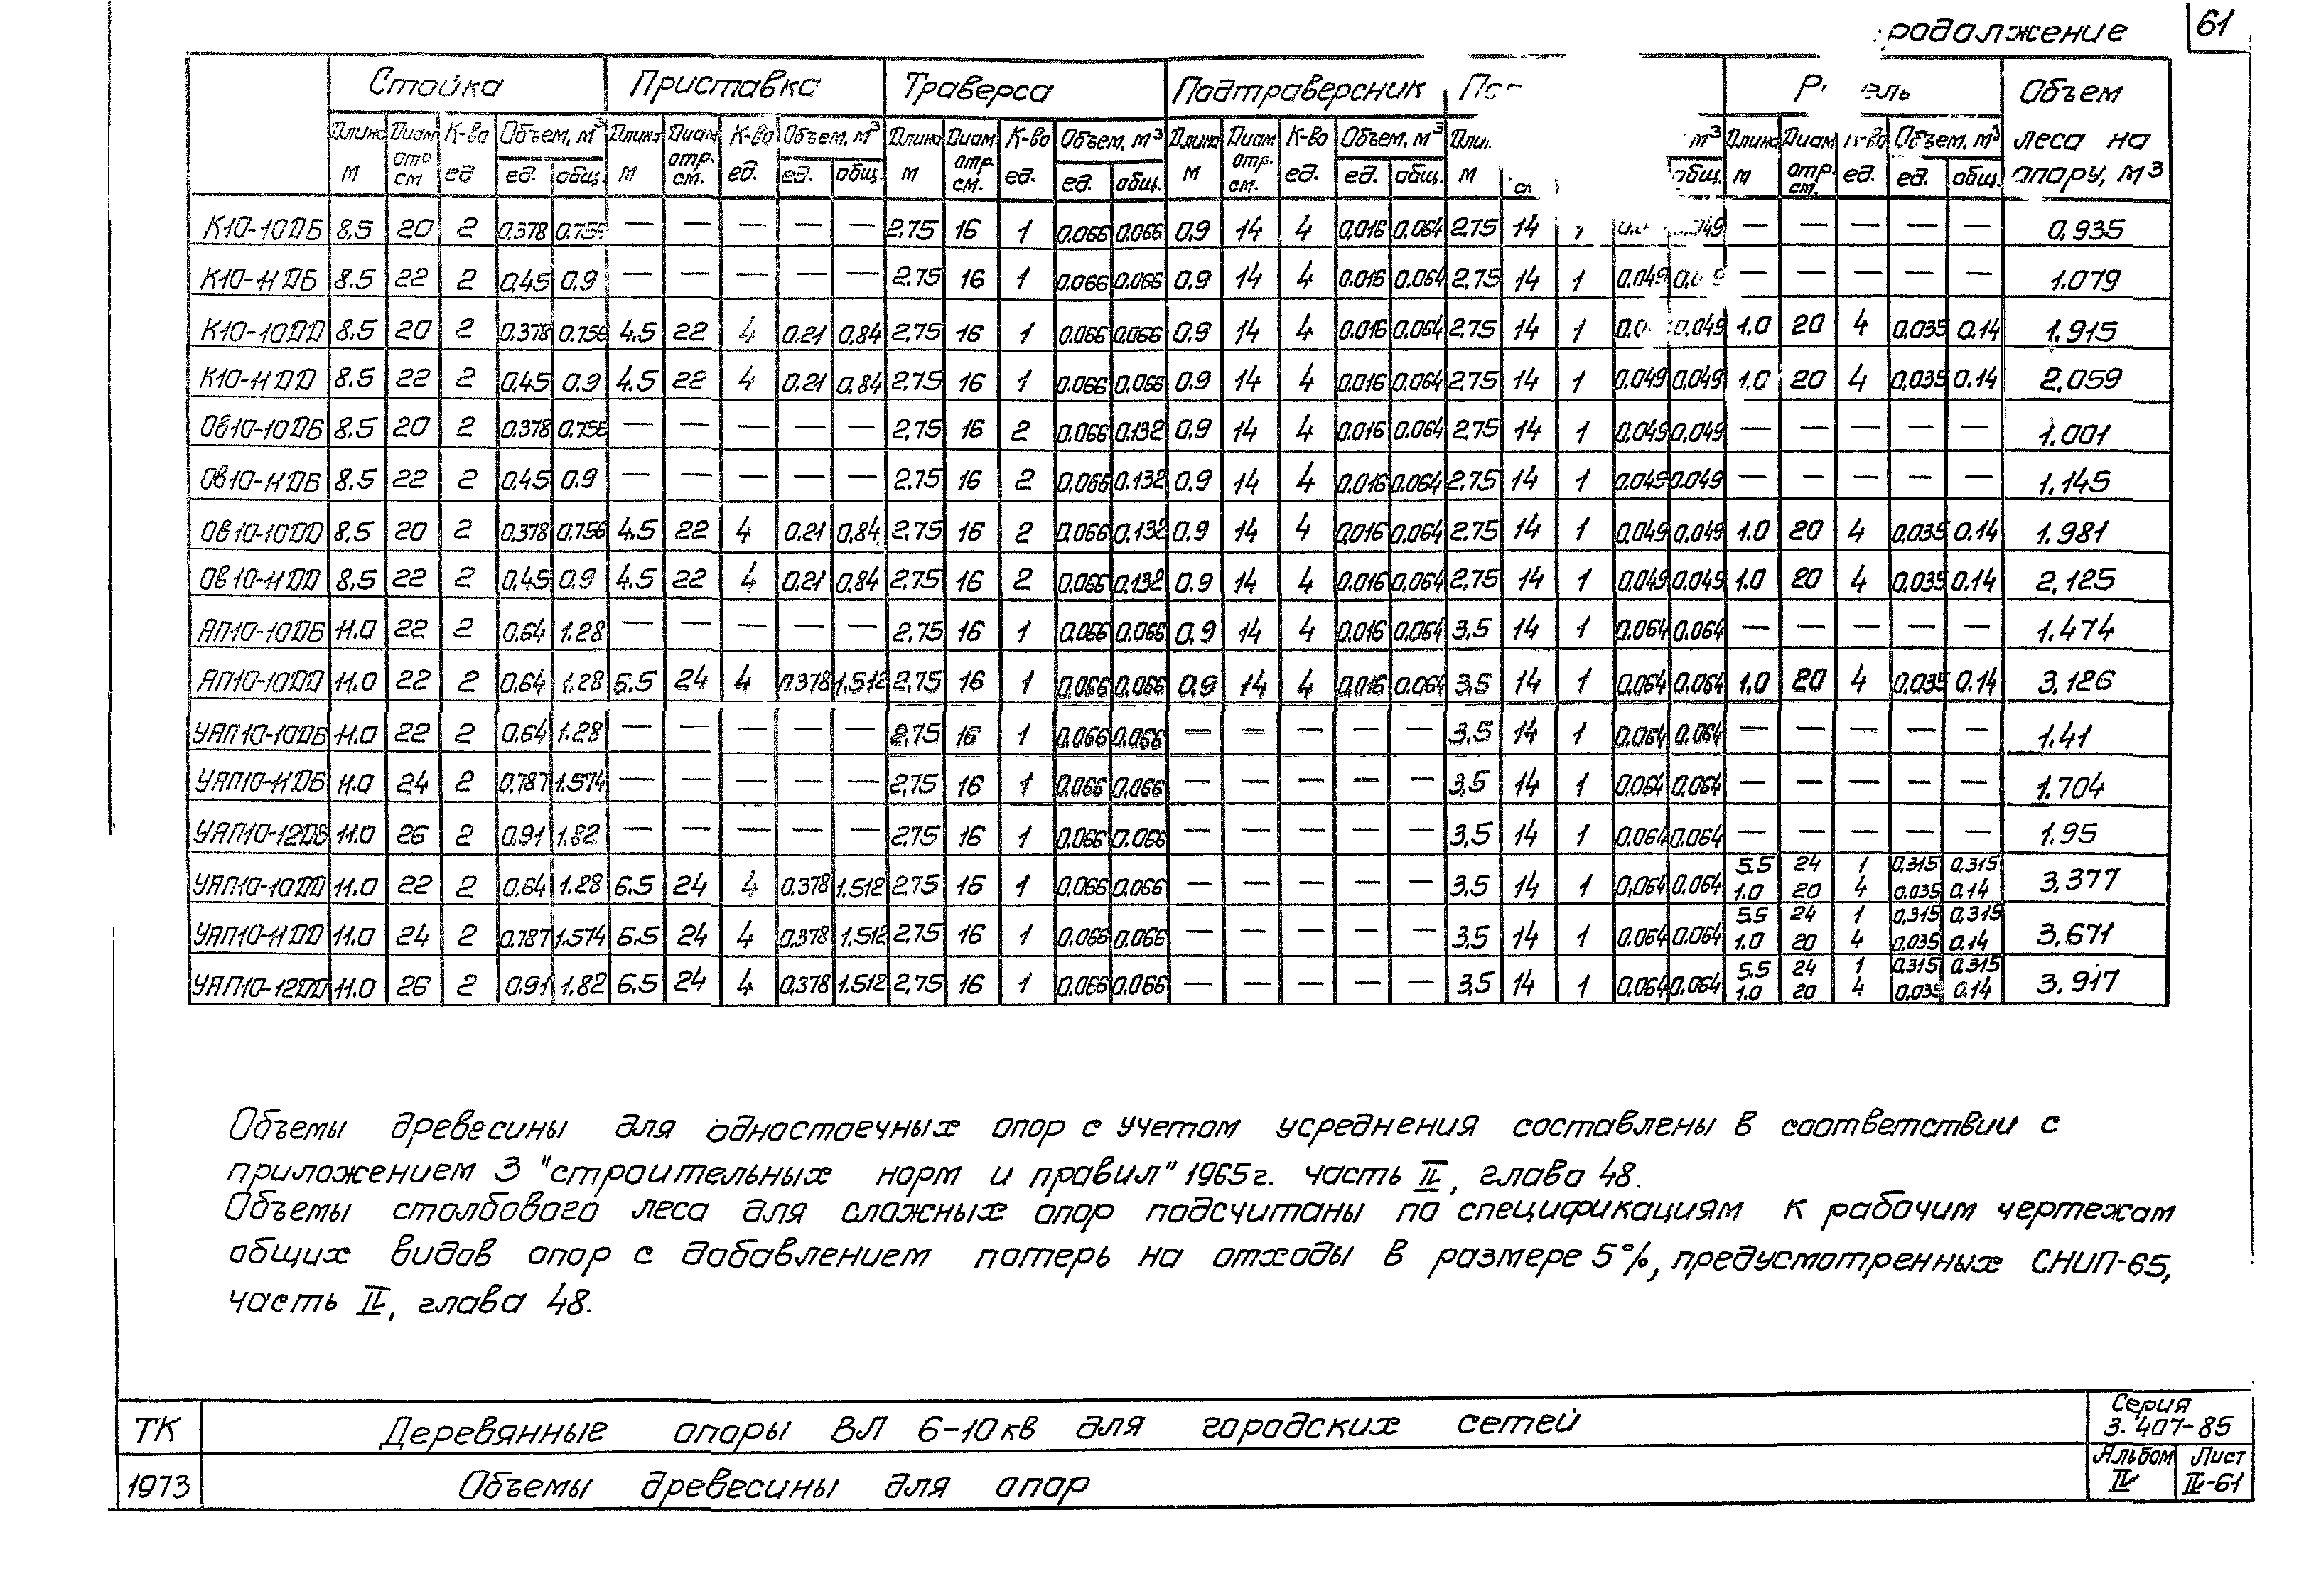 родолжение 61
Стойка Приставка Траверса Подтраверсник Объем
Длина Диам К-во Объем, м³ Длина Диам К-во Объем, м³ Длина Диам. К-во Объем, м³ Длина Диам К-во Объем, м³ м³ Длина Диам Объем, м³ леса на
м отр см ед ед. общ. м отр. см. ед. ед. общ. м отр. см. ед. ед. общ. м отр. см. ед. ед. общ. м общ. м отр. см. ед. ед. общ. опору, м³
К10-10ДБ 8.5 20 2 0.378 0.756 — — — — — 2.75 16 1 0.066 0.066 0.9 14 4 0.016 0.064 2.75 14 — — — — — 0.935
К10-11ДБ 8.5 22 2 0.45 0.9 — — — — — 2.75 16 1 0.066 0.066 0.9 14 4 0.016 0.064 2.75 14 1 0.049 — — — — — 1.079
К10-10ДД 8.5 20 2 0.378 0.756 4.5 22 4 0.21 0.84 2.75 16 1 0.066 0.066 0.9 14 4 0.016 0.064 2.75 14 1 0.049 1.0 20 4 0.035 0.14 1.915
К10-11ДД 8.5 22 2 0.45 0.9 4.5 22 4 0.21 0.84 2.75 16 1 0.066 0.066 0.9 14 4 0.016 0.064 2.75 14 1 0.049 0.049 1.0 20 4 0.035 0.14 2.059
Ов10-10ДБ 8.5 20 2 0.378 0.756 — — — — — 2.75 16 2 0.066 0.132 0.9 14 4 0.016 0.064 2.75 14 1 0.049 0.049 — — — — — 1.001
Ов10-11ДБ 8.5 22 2 0.45 0.9 — — — — — 2.75 16 2 0.066 0.132 0.9 14 4 0.016 0.064 2.75 14 1 0.049 0.049 — — — — — 1.145
Ов10-10ДД 8.5 20 2 0.378 0.756 4.5 22 4 0.21 0.84 2.75 16 2 0.066 0.132 0.9 14 4 0.016 0.064 2.75 14 1 0.049 0.049 1.0 20 4 0.035 0.14 1.981
Ов10-11ДД 8.5 22 2 0.45 0.9 4.5 22 4 0.21 0.84 2.75 16 2 0.066 0.132 0.9 14 4 0.016 0.064 2.75 14 1 0.049 0.049 1.0 20 4 0.035 0.14 2.125
АП10-10ДБ 11.0 22 2 0.64 1.28 — — — — — 2.75 16 1 0.066 0.066 0.9 14 4 0.016 0.064 3.5 14 1 0.064 0.064 — — — — — 1.474
АП10-10ДД 11.0 22 2 0.64 1.28 6.5 24 4 0.378 1.512 2.75 16 1 0.066 0.066 0.9 14 4 0.016 0.064 3.5 14 1 0.064 0.064 1.0 20 4 0.035 0.14 3.126
УАП10-10ДБ 11.0 22 2 0.64 1.28 — — — — — 2.75 16 1 0.066 0.066 — — — — — 3.5 14 1 0.064 0.064 — — — — — 1.41
УАП10-11ДБ 11.0 24 2 0.787 1.574 — — — — — 2.75 16 1 0.066 0.066 — — — — — 3.5 14 1 0.064 0.064 — — — — — 1.704
УАП10-12ДБ 11.0 26 2 0.91 1.82 — — — — — 2.75 16 1 0.066 0.066 — — — — — 3.5 14 1 0.064 0.064 — — — — — 1.95
5.5 24 1 0.315 0.315
УАП10-10ДД 11.0 22 2 0.64 1.28 6.5 24 4 0.378 1.512 2.75 16 1 0.066 0.066 — — — — — 3.5 14 1 0.064 0.064 1.0 20 4 0.035 0.14 3.377
5.5 24 1 0.315 0.315
УАП10-11ДД 11.0 24 2 0.787 1.574 6.5 24 4 0.378 1.512 2.75 16 1 0.066 0.066 — — — — — 3.5 14 1 0.064 0.064 1.0 20 4 0.035 0.14 3.671
5.5 24 1 0.315 0.315
УАП10-12ДД 11.0 26 2 0.91 1.82 6.5 24 4 0.378 1.512 2.75 16 1 0.066 0.066 — — — — — 3.5 14 1 0.064 0.064 1.0 20 4 0.035 0.14 3.917
Объемы древесины для одностоечных опор с учетом усреднения составлены в соответствии с
приложением 3 "строительных норм и правил" 1965г. часть II, глава 48.
Объемы столбового леса для сложных опор подсчитаны по спецификациям к рабочим чертежам
общих видов опор с добавлением потерь на отходы в размере 5%, предусмотренных СНИП-65,
часть II, глава 48.
ТК Деревянные опоры ВЛ 6-10кв для городских сетей Серия 3.407-85
1973 Объемы древесины для опор Альбом II Лист II-61